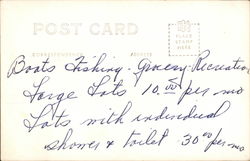 POST CARD
PLACE
STAMP
HERE
CORRESPONDENCE
ADDRESS
Boats Fishing - Grocery - Recreation
Large Lots 10.00 per mo
Lots with individual
shower & toilet 30 00 per mo